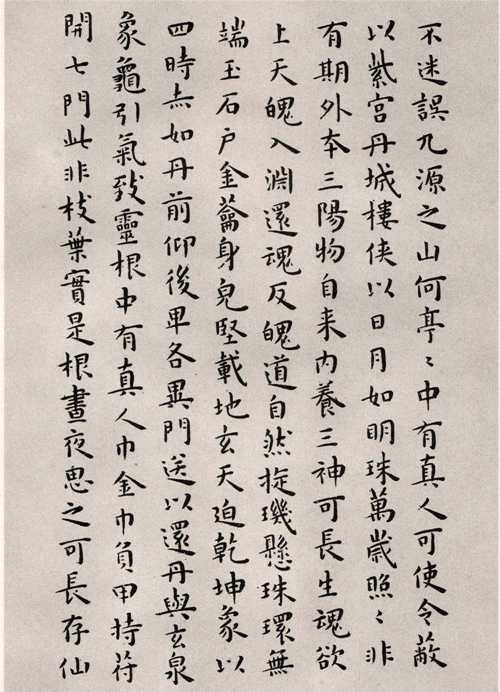 不迷誤九源之山何亭〻中有真人可使令蔽
以紫宫丹城樓俠以日月如明珠萬歲照〻非
有期外夲三陽物自来内養三神可長生魂欲
上天魄入淵還魂反魄道自然掟璣懸珠環無
端玉石户金蘥身皃堅載地玄天迫乾坤象以
四時赤如丹前仰後卑各異門送以還丹與玄泉
象龜引氣致靈根中有真人巾金巾負甲持苻
開七門此非枝葉實是根晝夜思之可長存仙